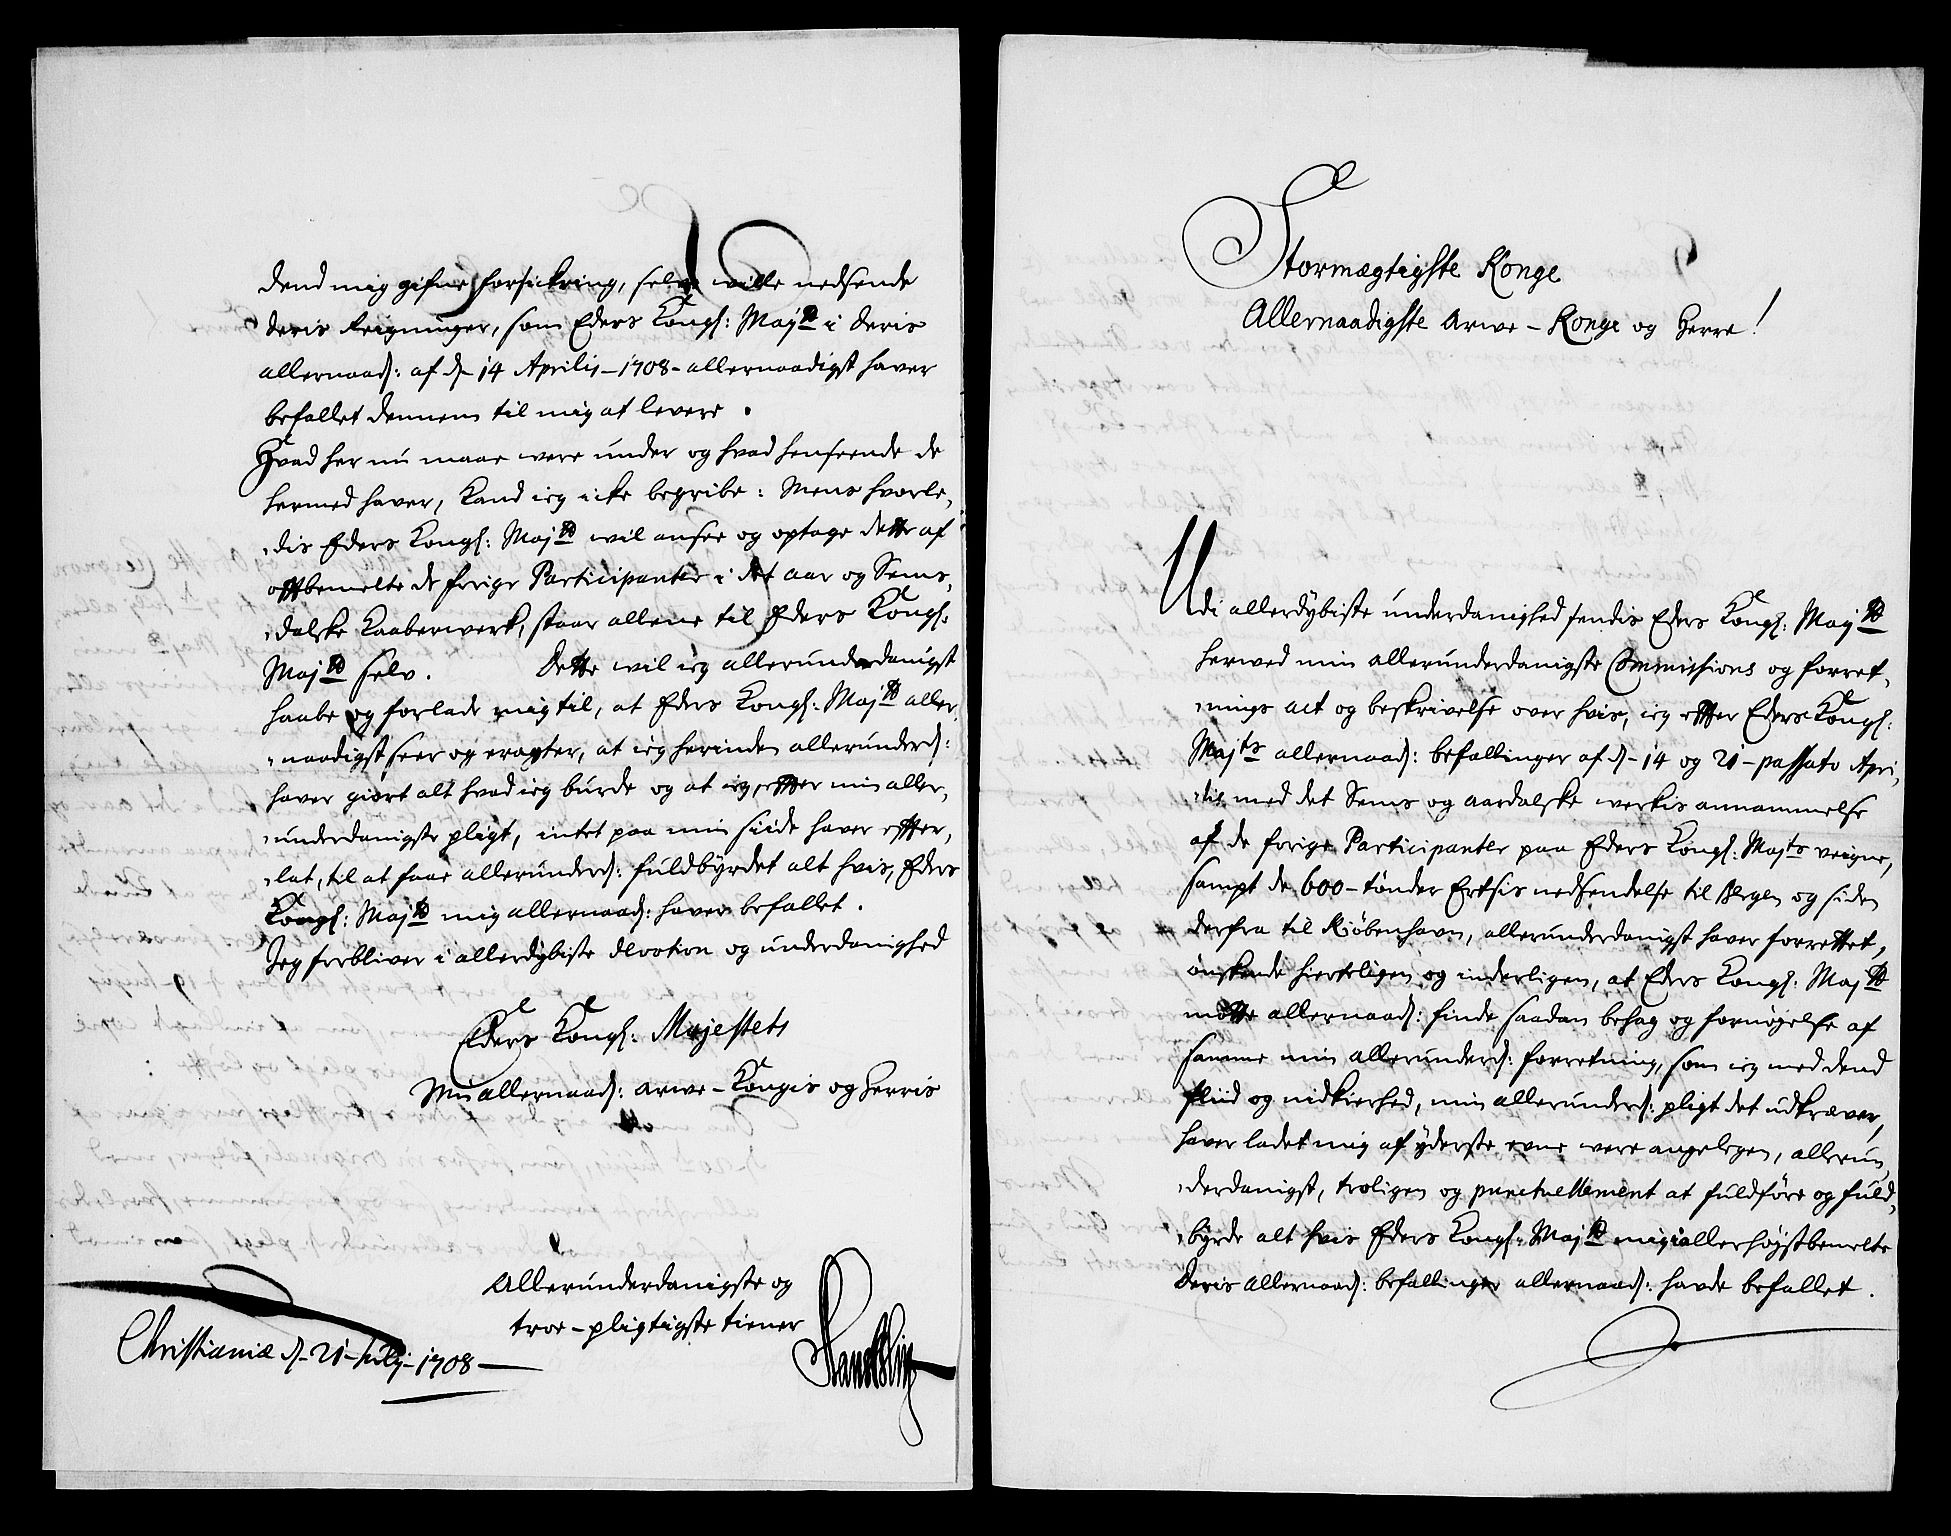 dend mig gifne forsickring, selv wille nedsende
deris Reigninger, som Eders Kongl: Majtt i deris
allernaad: af d- 14 Aprilis - 1708 - allernaadigst haver
befallet dennem til mig at levere.
Hvad her nu maae were under og hvad henseende de
hermed haver, kand ieg icke begribe: Mens hvorle,
,dis Eders Kongl: Majtt wil ansee og optage dette af
offtbemelte de forige Participanter i det aar og Sems,
,dalske Kaaberwerk, staar allene til Eders Kongl:
Majtt selv. Dette wil ieg allerunderdanigst
haabe og forlade mig til, at Eders Kongl: Majtt aller,
,naadigst seer og eragter, at ieg herinden allerunderd:
haver giort alt hvad ieg burde og at ieg, effter min aller,
,underdanigste pligt, intet paa min siide haver effter,
,lat, til at faae allerunderd: fuldbyrdet alt hvis, Eders
Kongl: Majtt mig allernaad: haver befallet.
Jeg forbliver i allerdybiste devotion og underdanighed
Eders Kongl: Majestets
Min allernaad: Arwe-Kongis og Herris
Allerunderdanigste og
troe-pligtigste tiener
Christianiæ d- 21- Julij - 1708 -
Stormægtigste Konge
Allernaadigste Arwe-Konge og Herre!
Udi allerdybiste underdanighed sendis Eders Kongl: Majtt
herwed min allerunderdanigste Commissions og forret,
,nings act og beskrivelse over hvis, ieg effter Eders Kongl:
Majts allernaad: befallinger af d- 14 og 21 - passato Apri,
,lis med det Sems og aardalske werkis annammelse
af de forige Participanter paa Eders Kongl: Majts veigne,
sampt de 600 - tønder Ertsis nedsendelse til Bergen og siden
derfra til Kiøbenhavn, allerunderdanigst haver forrettet,
ønskende hierteligen og inderligen, at Eders Kongl: Majtt
motte allernaad: finde saadan behag og fornøjelse af
samme min allerunderd: forretning, som ieg med dend
fliid og nidkierhed, min allerunderd: pligt det udkræver,
haver ladet mig af yderste evne were angelegen, allerun,
,derdanigst, troligen og punctuellement at fuldføre og fuld,
,byrde alt hvis Eders Kongl: Majtt mig i allerhøystbemelte
Deris allernaad: befallinger allernaad: havde befallet.